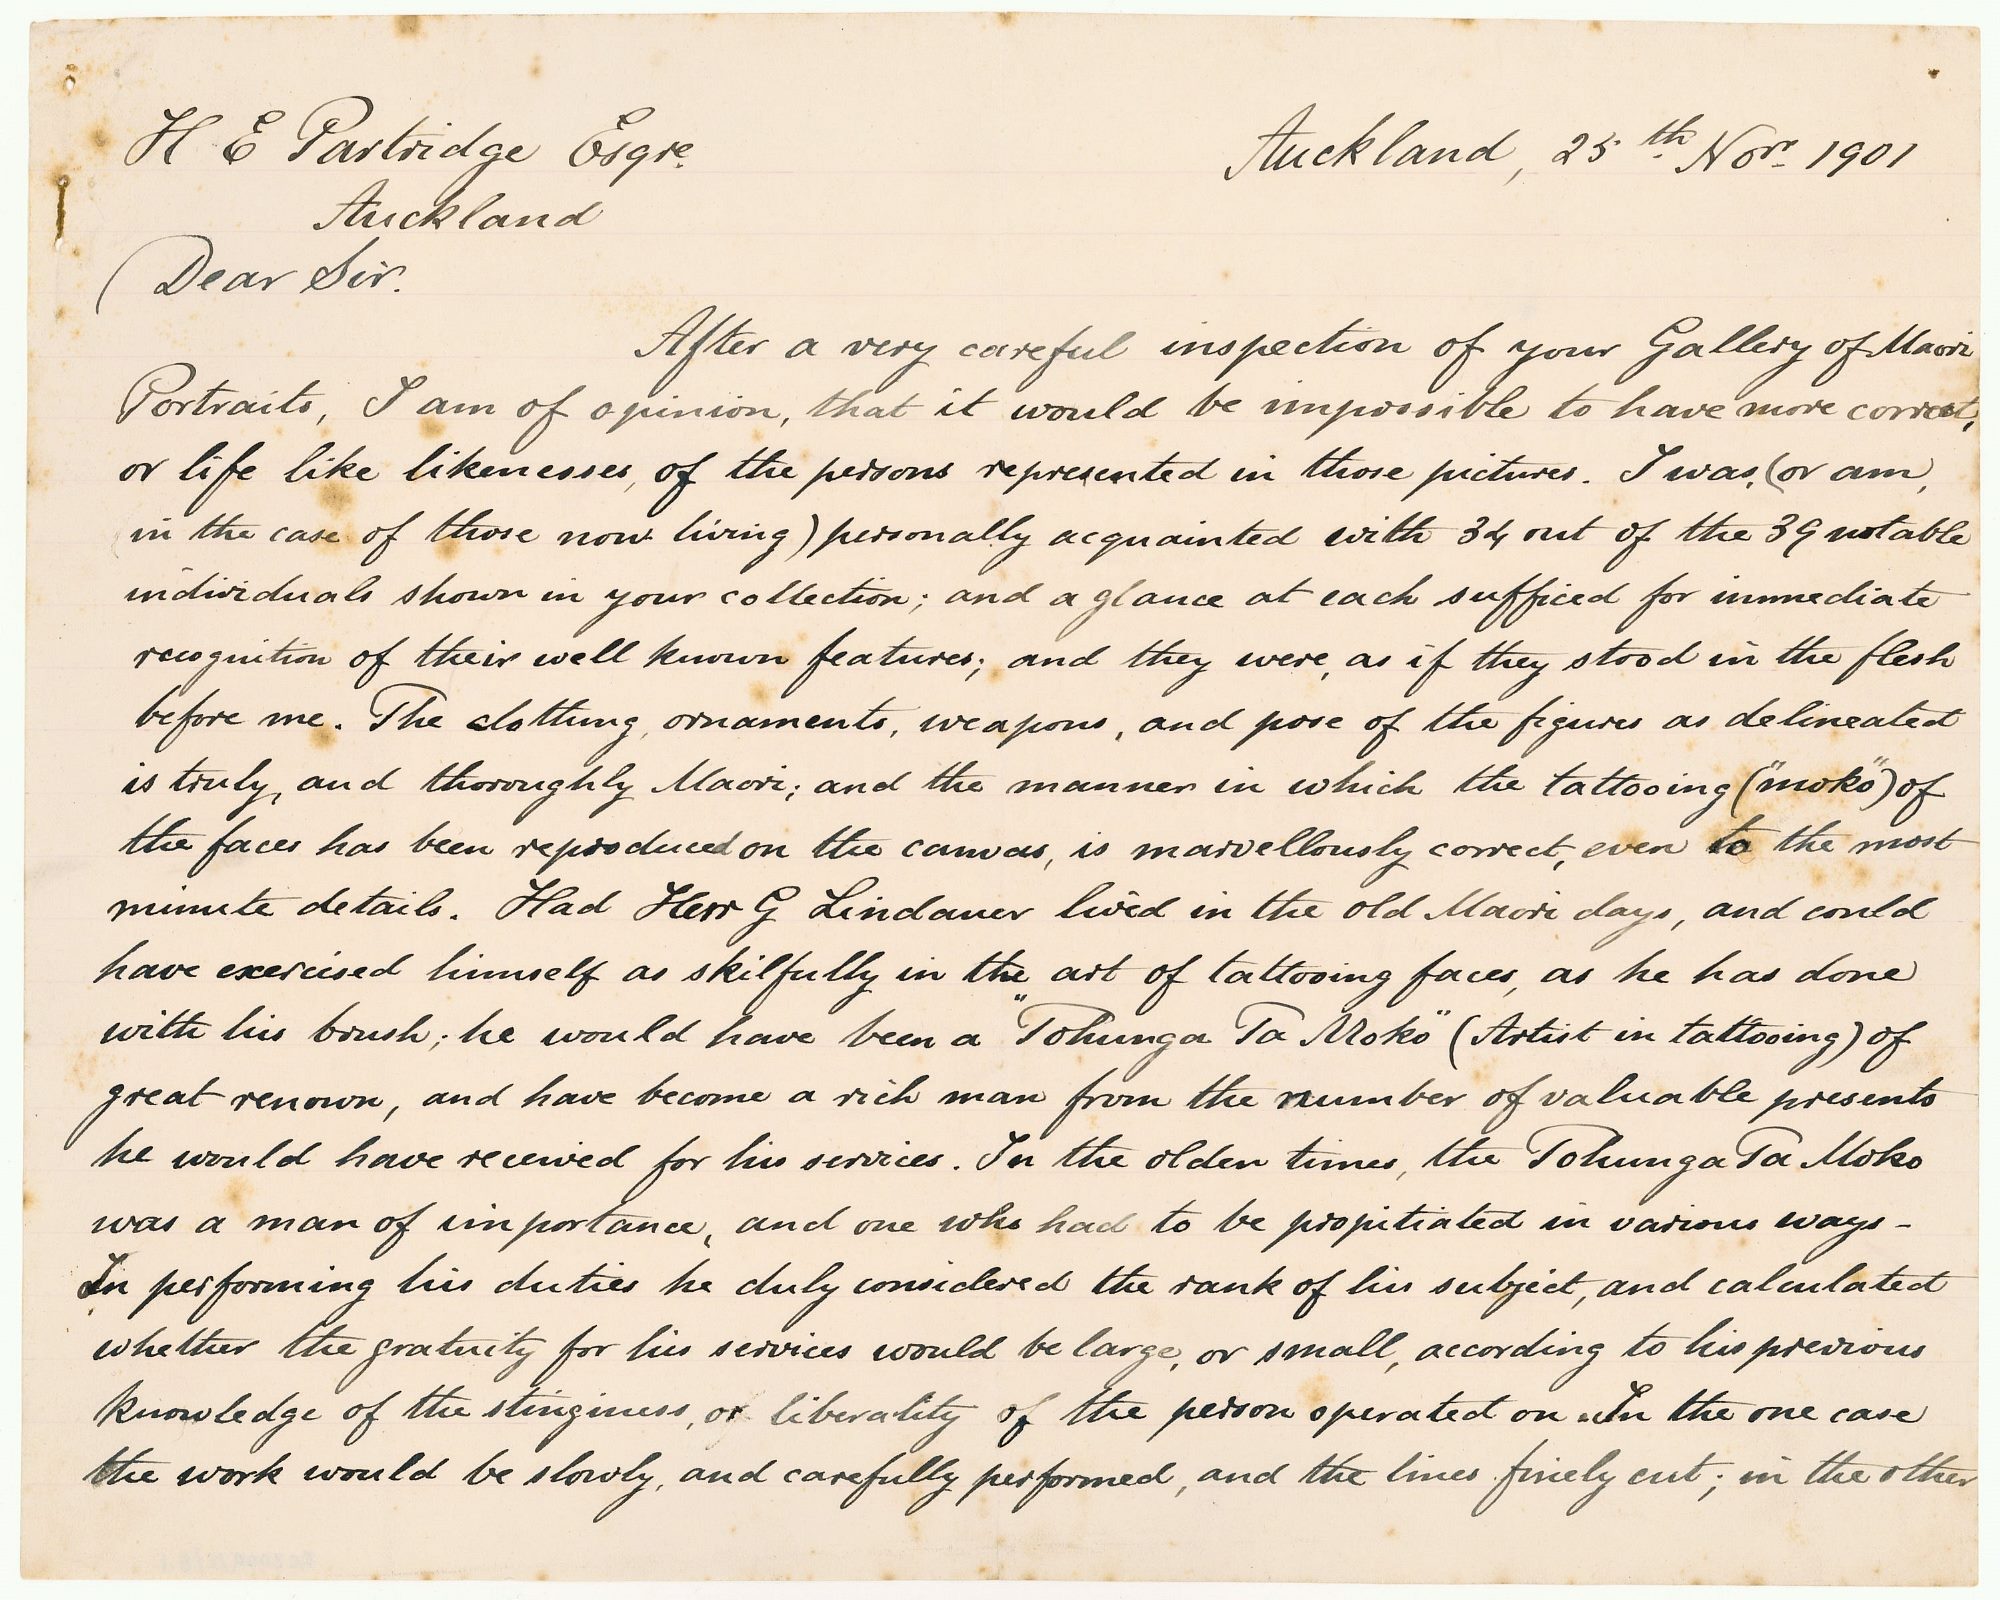 H E Partridge Esqre.
Auckland, 25th Novr. 1901
Auckland
Dear Sir.
After a very careful inspection of your Gallery of Maori
Portraits, I am of opinion, that it would be impossible to have more correct,
or life like likenesses, of the persons represented in those pictures. I was, (or am,
in the case of those now living) personally acquainted with 34 out of the 39 notable
individuals shown in your collection; and a glance at each sufficed for immediate
recognition of their well known features; and they were, as if they stood in the flesh
before me. The clothing, ornaments, weapons, and pose of the figures as delineated
is truly, and thoroughly Maori; and the manner in which the tattooing ("moko") of
the faces has been reproduced on the canvas, is marvellously correct, even to the most
minute details. Had Herr G Lindauer lived in the old Maori days, and could
have exercised himself as skilfully in the art of tattooing faces, as he has done
with his brush; he would have been a "Tohunga Ta Moko" (Artist in tattooing) of
great renown, and have become a rich man from the number of valuable presents
he would have received for his services. In the olden times, the Tohunga Ta Moko
was a man of importance, and one who had to be propitiated in various ways -
In performing his duties he duly considered the rank of his subject, and calculated
whether the gratuity for his services would be large, or small, according to his previous
knowledge of the stinginess, or liberality of the person operated on. In the one case
the work would be slowly, and carefully performed, and the lines finely cut; in the other